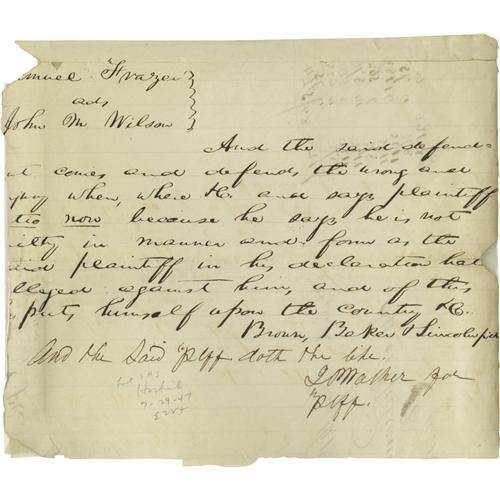 muel Frazer
ads
John M Wilson
And the said defend=
nt comes and defends the wrong and
jury when, where &c. and says plaintiff
actio now because he says he is not
uilty in manner and form as the
aid plaintiff in his declaration hat
lleged against him, and of this
puts himself upon the country &c.
Brown, Baker & Lincoln pd
And the said plff doth the like.
Walker for
plff.
7-29-47